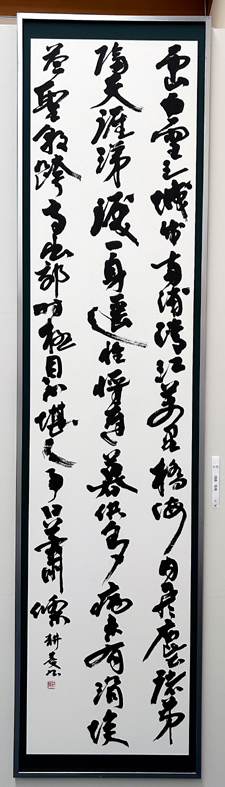 西山白雪三城戍南浦清江萬里橋海內風塵諸弟
隔天涯涕淚一身遙惟將遲暮供多病未有涓埃
答聖朝跨馬出郊時極目不堪人事日蕭條 耕